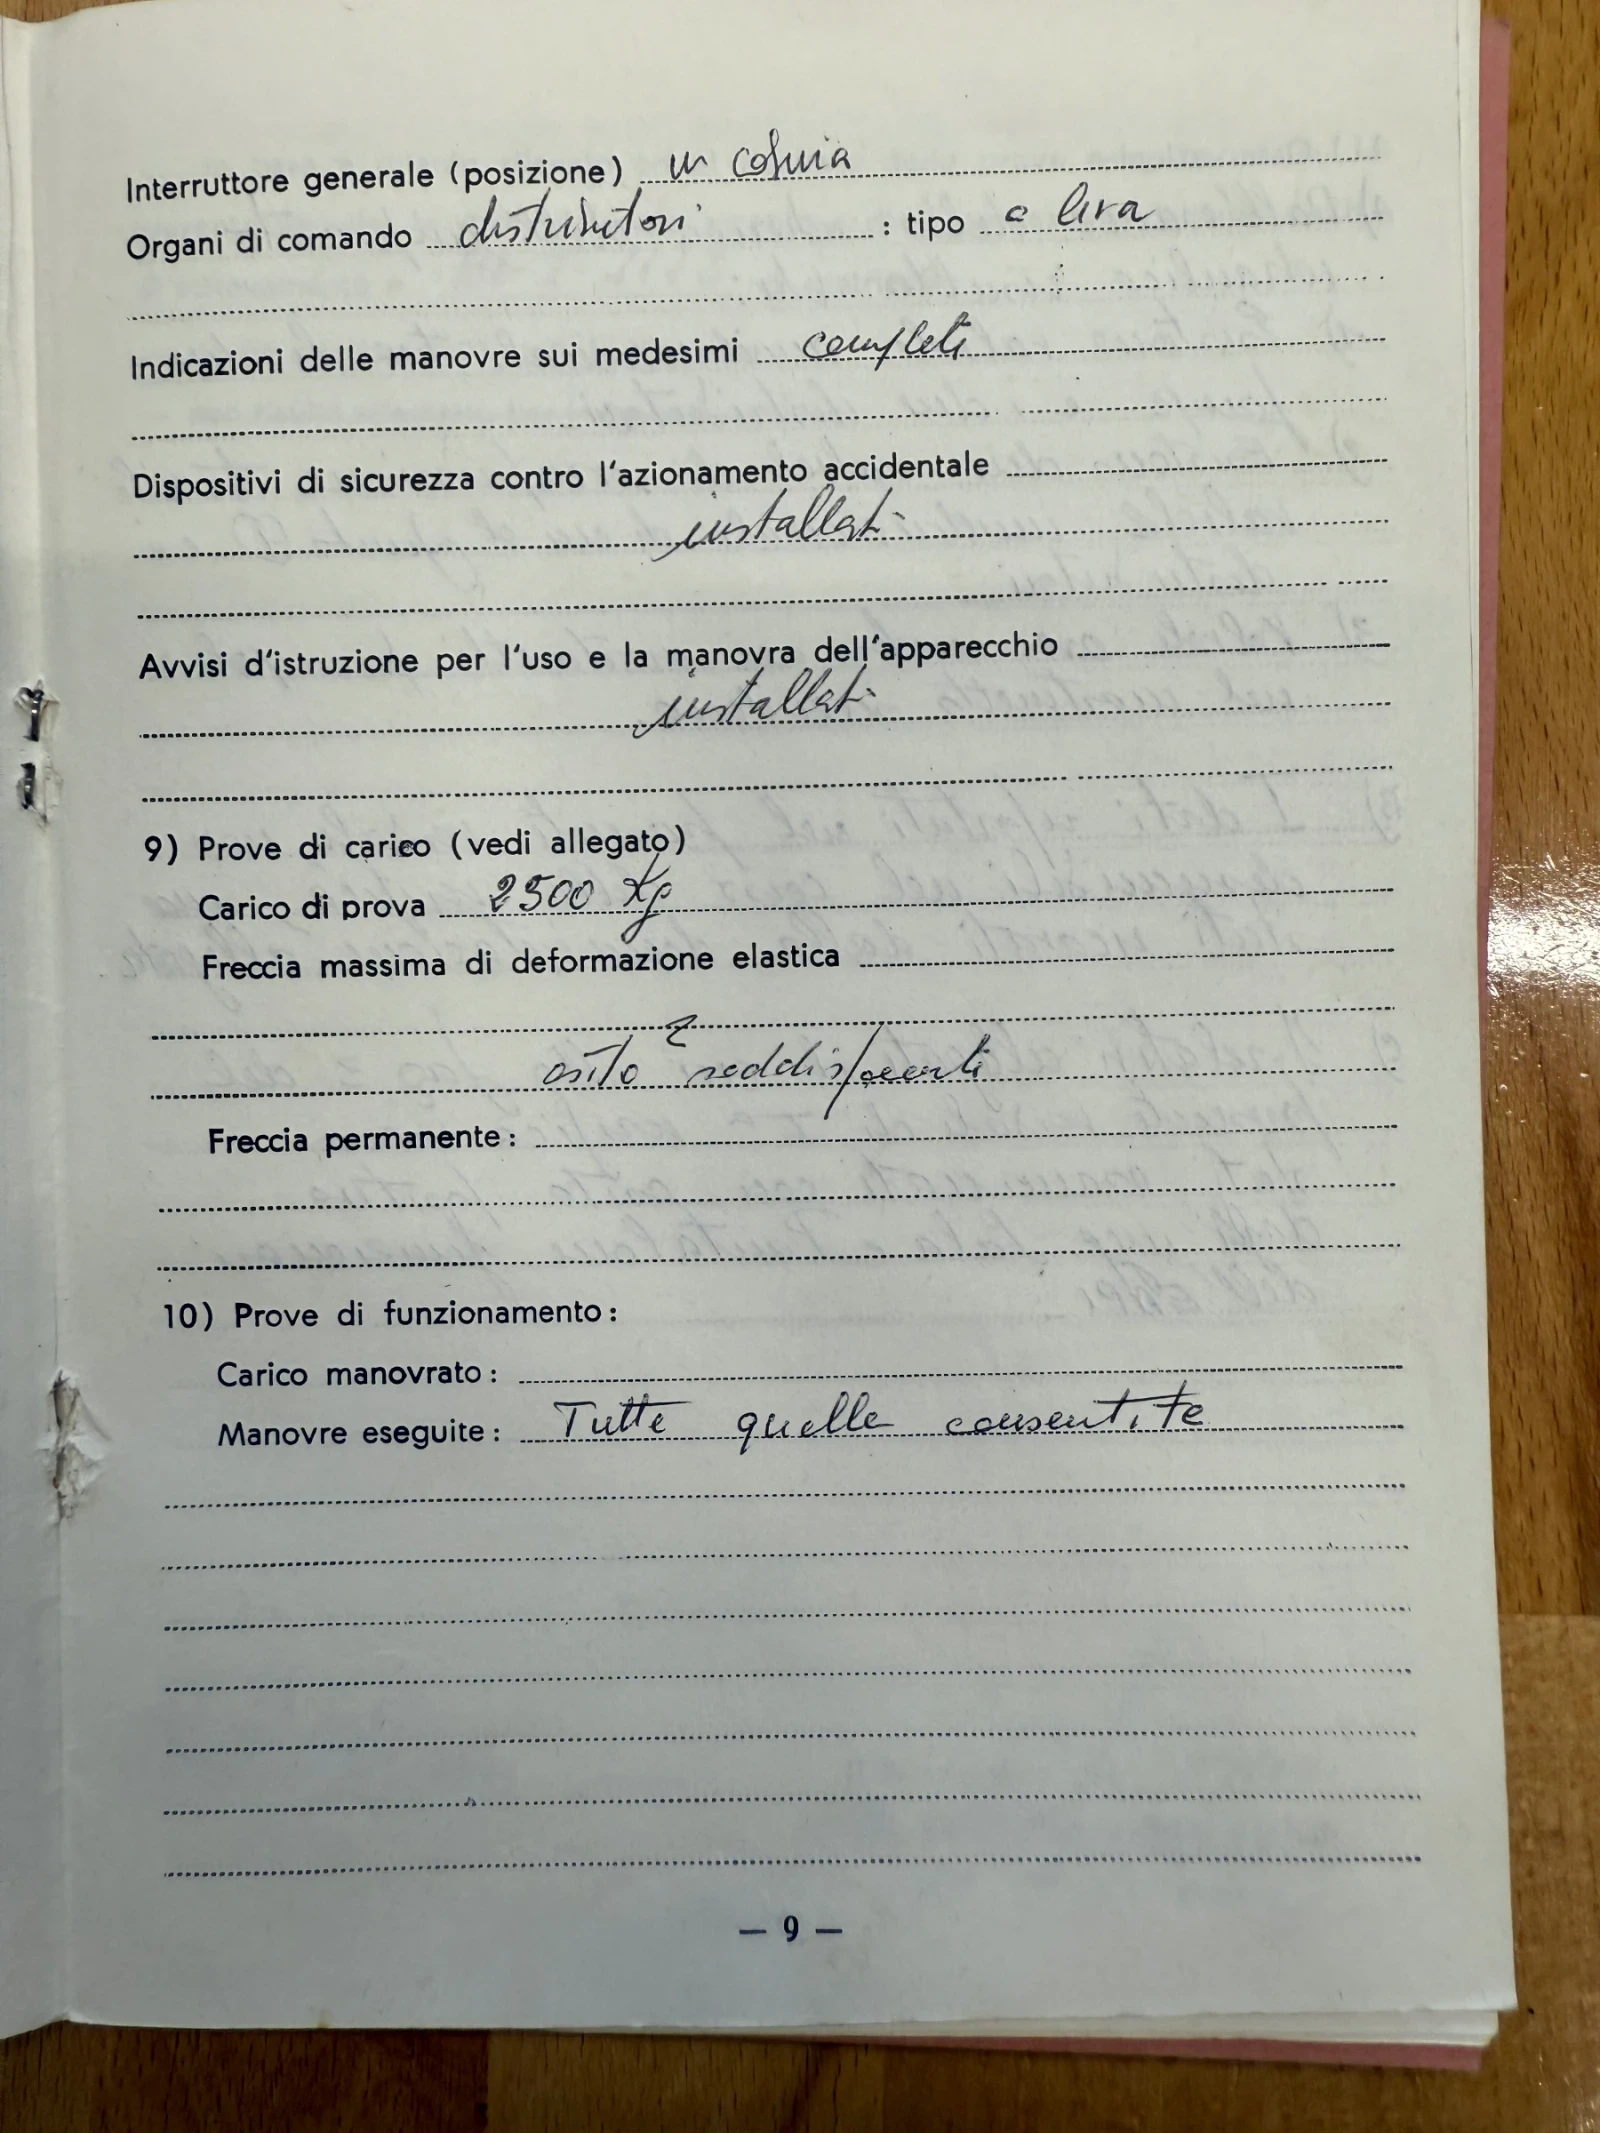 Interruttore generale (posizione) in cabina
Organi di comando distributori : tipo a leva
Indicazioni delle manovre sui medesimi complete
Dispositivi di sicurezza contro l'azionamento accidentale
installati
Avvisi d'istruzione per l'uso e la manovra dell'apparecchio
installati
9) Prove di carico (vedi allegato)
Carico di prova 2500 Kg
Freccia massima di deformazione elastica
esito soddisfacente
Freccia permanente:
10) Prove di funzionamento:
Carico manovrato:
Manovre eseguite: Tutte quelle consentite
— 9 —